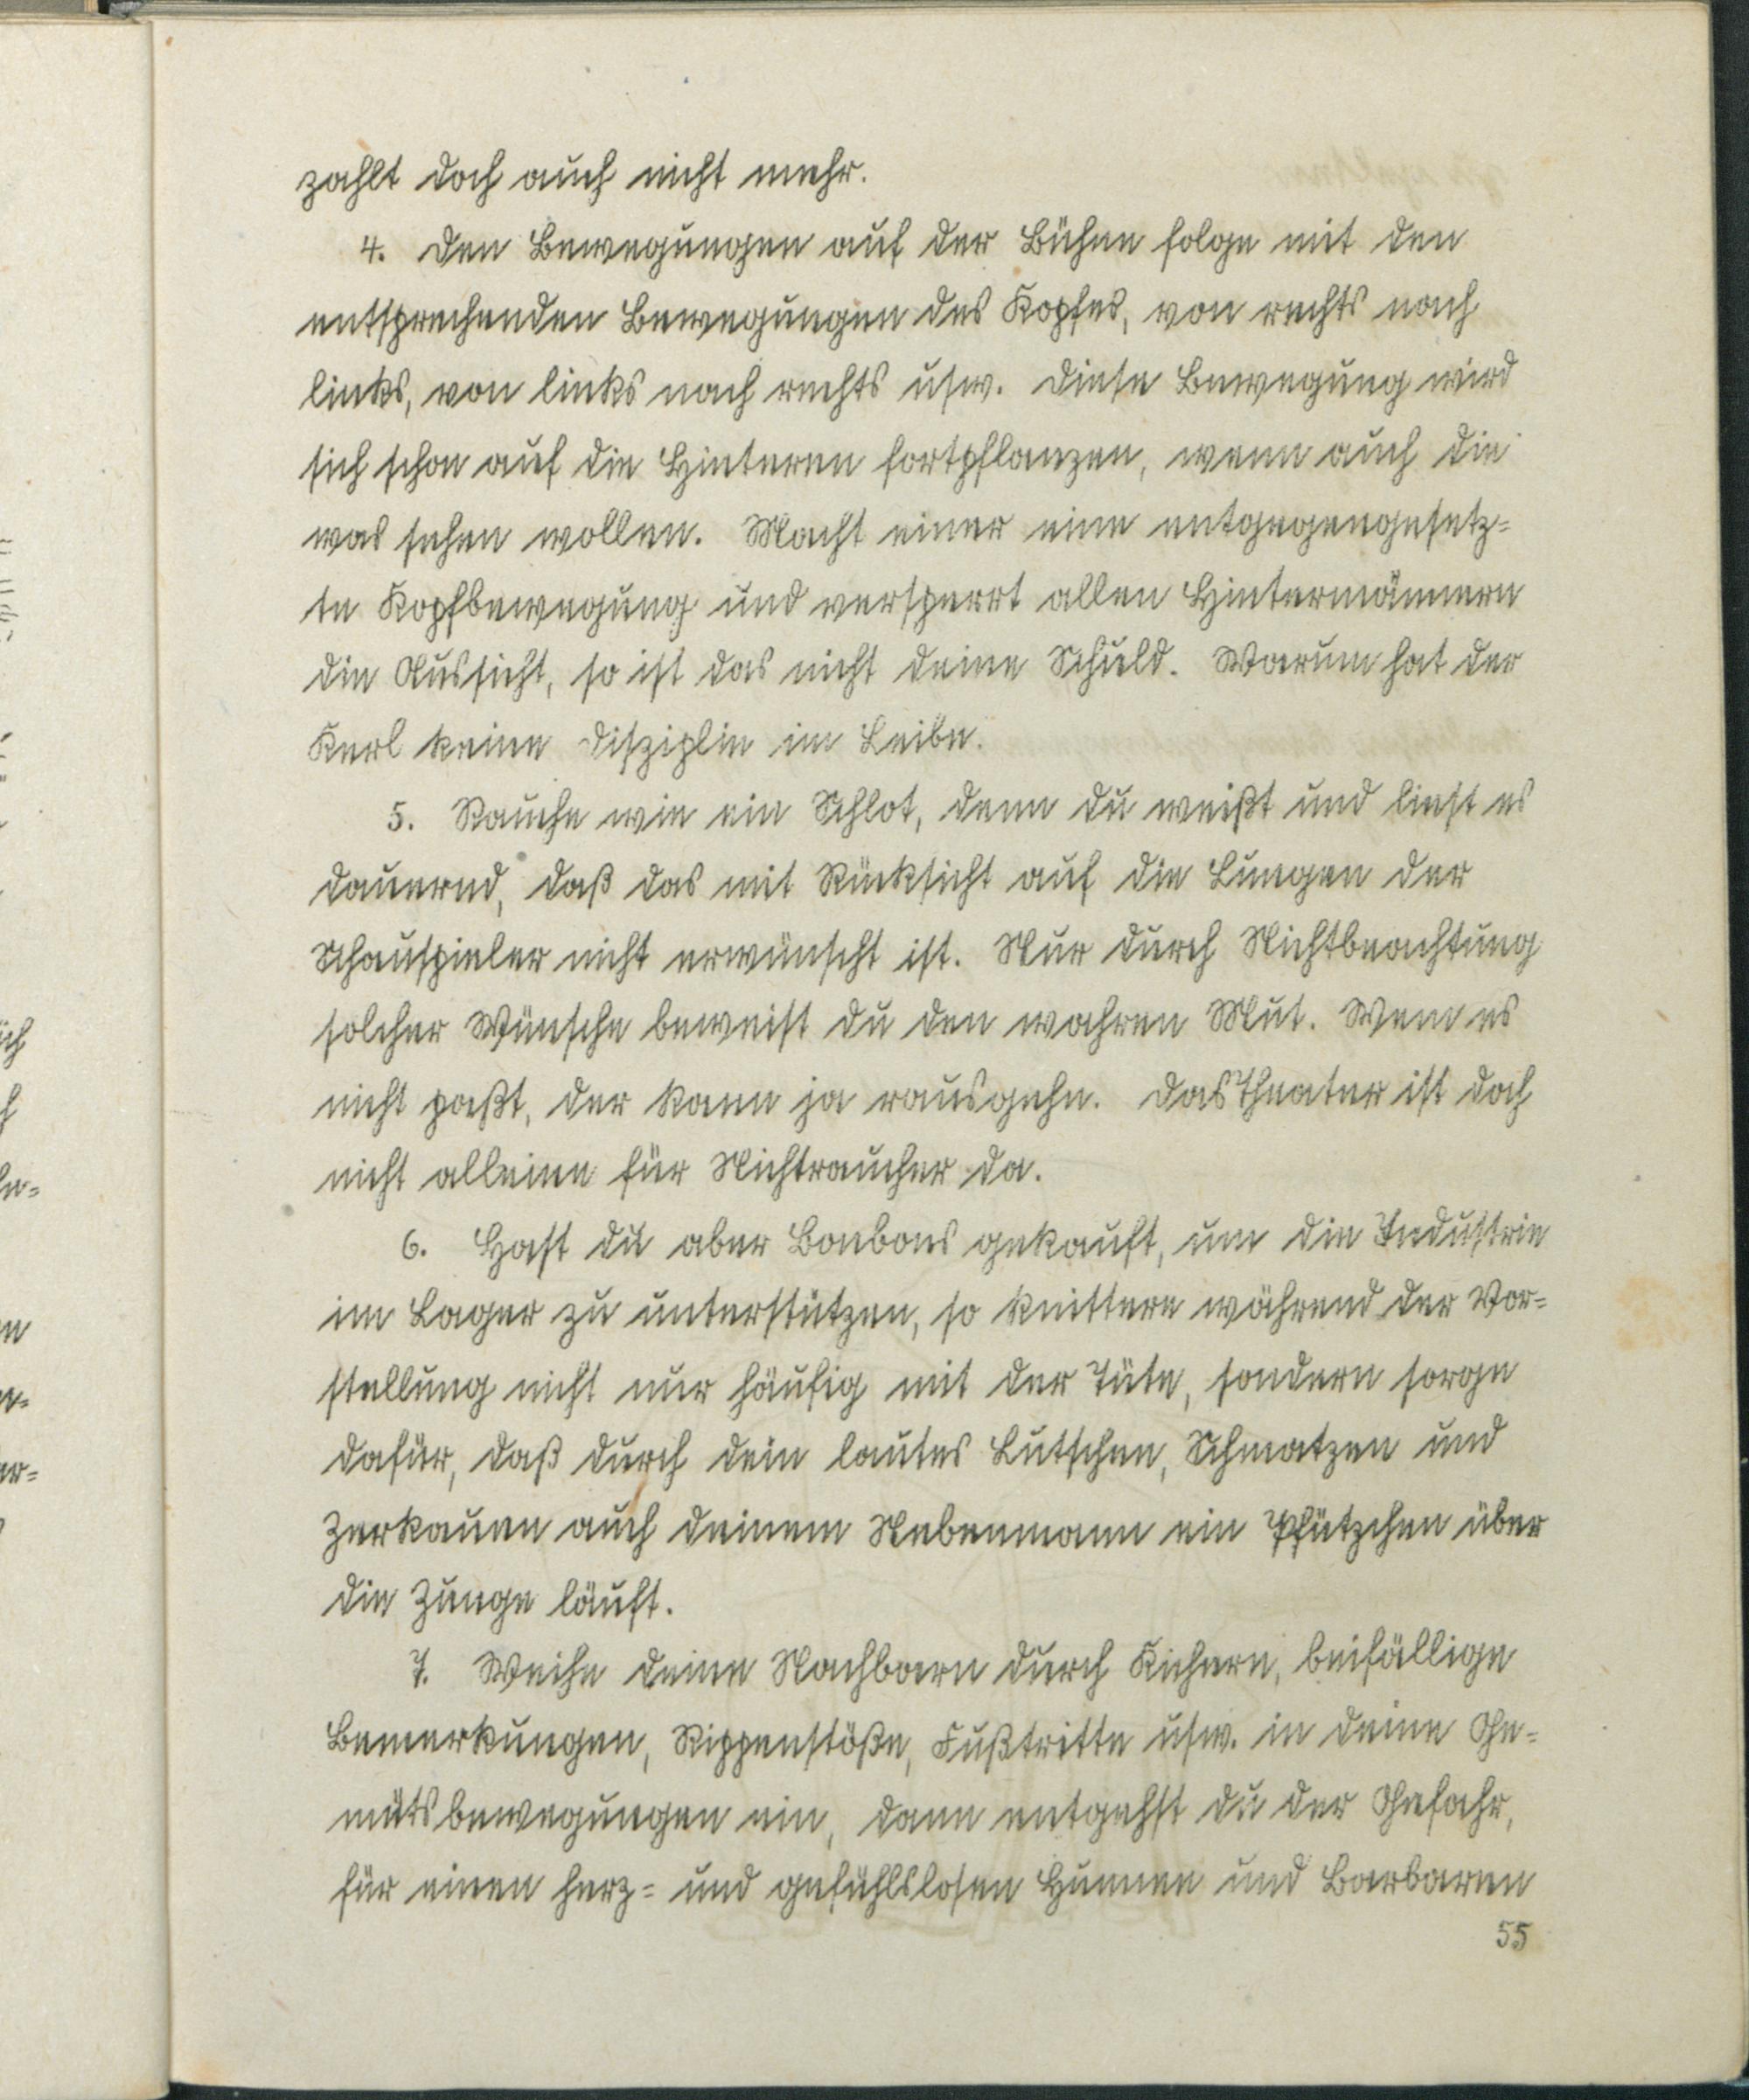 zahlt doch auch nicht mehr.
4. Den Bewegungen auf der Bühne folge mit den
entsprechenden Bewegungen des Kopfes, von rechts nach
links, von links nach rechts usw. Diese Bewegung wird
sich schon auf die Hinteren fortpflanzen, wenn auch die
was sehen wollen. Macht einer eine entgegengesetz=
te Kopfbewegung und versperrt allen Hintermännern
die Aussicht, so ist das nicht deine Schuld. Warum hat der
Kerl keine Disziplin im Leibe.
5. Rauche wie ein Schlot, denn du weißt und liest es
dauernd, daß das mit Rücksicht auf die Lungen der
Schauspieler nicht erwünscht ist. Nur durch Nichtbeachtung
solcher Wünsche beweist du den wahren Mut. Wem es
nicht paßt, der kann ja rausgehe. Das Theater ist doch
nicht alleine für Nichtraucher da.
6. Hast du aber Bonbons gekauft, um die Industrie
im Lager zu unterstützen, so knittere während der Vor=
stellung nicht nur häufig mit der Tüte, sondern sorge
dafür, daß durch dein lautes Lutschen, Schmatzen und
Zerkauen auch deinem Nebenmann ein Pfützchen über
die Zunge läuft.
7. Weihe deine Nachbarn durch Kichern, beifällige
Bemerkungen, Rippenstöße, Fußtritte usw. in deine Ge=
mütsbewegungen ein, dann entgehst du der Gefahr,
für einen herz= und gefühlslosen Hunnen und Barbaren
55